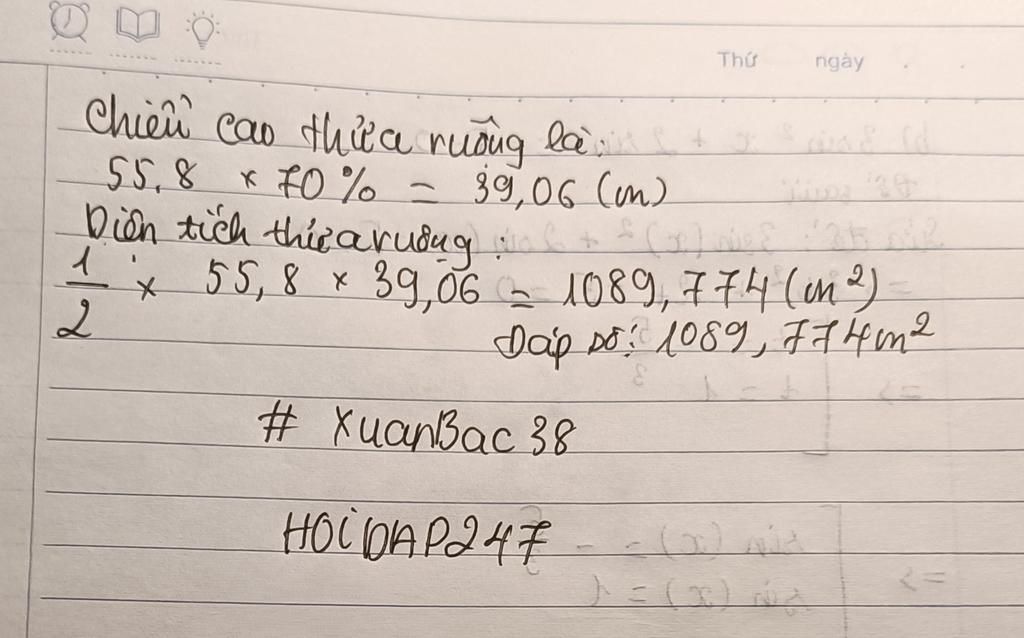 Thứ ngày
Chiều cao thửa ruộng là:
55,8 × 70% = 39,06 (m)
Diện tích thửa ruộng:
1/2 × 55,8 × 39,06 = 1089,774 (m²)
Đáp số: 1089,774m²
# XuanBac38
HOiDAP247